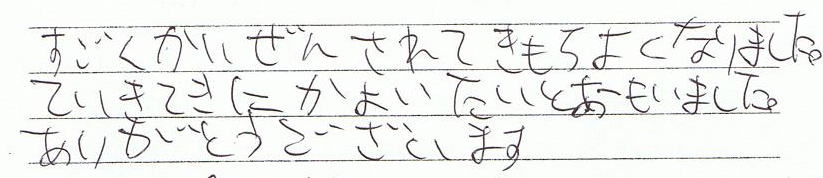 すごくかいぜんされてきもちよくなりました。
ていきてきにかよいたいとおもいました。
ありがとうございます